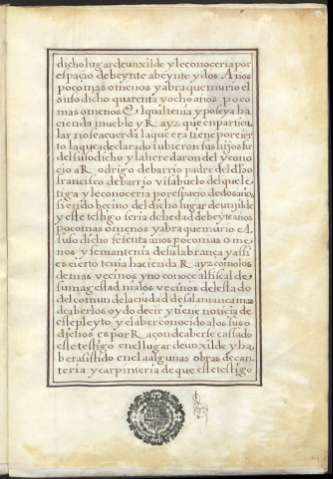 dicho lugar deunxilde y le conoceria por
espaçio de beynte a beynte y dos Años
poco mas o menos y abra que murio el
suso dicho quarenta y ocho años poco
mas o menos El qual tenia y poseya ha
cienda mueble y Rayz que en particu
lar no se acuerda la que era tiene por çier
to la que a declarado tubieron sus hijos fue
del suso dicho y la heredaron del y cono
çio a Rodrigo de barrio padre del dho
francisco de barrio y fue abuelo del que le ti
ga y le conoceria por espacio de dos años
siendo beçino del dicho lugar deunxilde
y este testigo seria de hedad de beyte años
poco mas o menos y abra que murio el
suso dicho sesenta años poco mas o me
nos y se mantenia de la labrança y assi
es çierto tenia haçienda Rayz como los
demas veçinos y no conoce al fiscal de
su magestad ni a los veçinos del estado
del comun de la ciudad de salamanca mas
de aberlos oydo decir y tiene notiçia de
este pleyto y el aber conocido a los suso
dichos es por Raçon de aberse cassado
este testigo en el lugar deunxilde y ha
ber asistido en el a algunas obras de can
teria y carpinteria de que este testigo